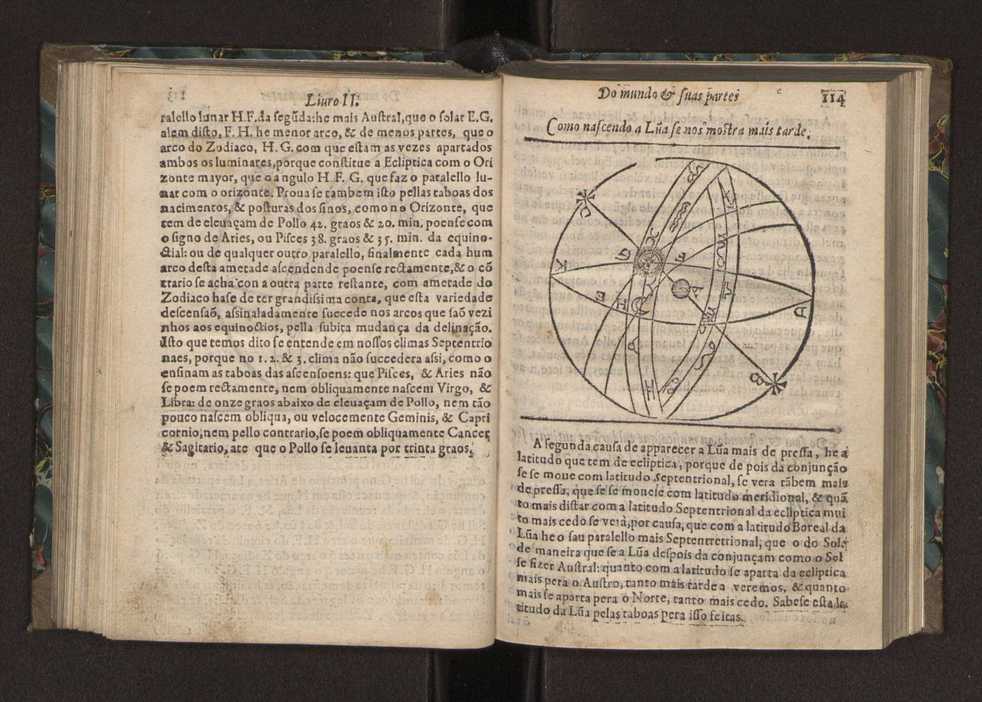 Liuro II.
ralello lunar H.F.da segũda:he mais Austral,que o solar E.G.
alem disto, F. H. he menor arco, & de menos partes, que o
arco do Zodiaco, H. G. com que estam as vezes apartados
ambos os luminares,porque constitue a Ecliptica com o Ori
zonte mayor, que o angulo H. F. G. que faz o paralello lu-
nar com o orizonte. Proua se tambem isto pellas taboas dos
nacimentos, & posturas dos sinos, como no Orizonte, que
tem de eleuaçam de Pollo 42. graos & 20. min. poense com
o signo de Aries, ou Pisces 38. graos & 35. min. da equino-
ctial: ou de qualquer outro paralello, finalmente cada hum
arco desta ametade ascendende poense rectamente,& o cõ
trario se acha con a outra parte restante, com ametade do
Zodiaco hase de ter grandissima conta, que esta variedade
descensaõ, assinaladamente succede nos arcos que saõ vezi
nhos aos equinoctios, pella subita mudança da delinação.
Isto que temos dito se entende em nossos climas Septentrio
naes, porque no 1. 2. & 3. clima não succedera assi, como o
ensinam as taboas das ascensoens: que Pisces, & Aries não
se poem rectamente, nem obliquamente nascem Virgo, &
Libra: de onze graos abaixo de eleuaçam de Pollo, nem tão
pouco nascem obliqua, ou velocemente Geminis, & Capri
cornio,nem pello contrario,se poem obliquamente Cancer,
& Sagitario, ate que o Pollo se leuanta por trinta graos.
Do mundo & suas partes
114
Como nascendo a Lũa se nos mostra mais tarde.
C
G
F
K
E
H
A
A
D
H
B
A segunda causa de apparecer a Lũa mais de pressa, he a
latitudo que tem de ecliptica, porque de pois da conjunção
se se moue com latitudo septentrional, se vera tãbem mais
de pressa, que se se mouese com latitudo meridional, & quã
to mais distar com a latitudo Septentrional da ecliptica mui
to mais cedo se verà,por causa, que com a latitudo Boreal da
Lũa he o sau paralello mais Septentrettional, que o do Sole
de maneira que se a Lũa despois da conjunçam como o Sol
se fizer Austral: quanto com a latitudo se aparta da ecliptica
mais pera o Austro, tanto mais tarde a veremos, & quanto
mais se aparta pera o Norte, tanto mais cedo. Sabese esta la-
titudo da Lũa pelas taboas pera isso feitas.